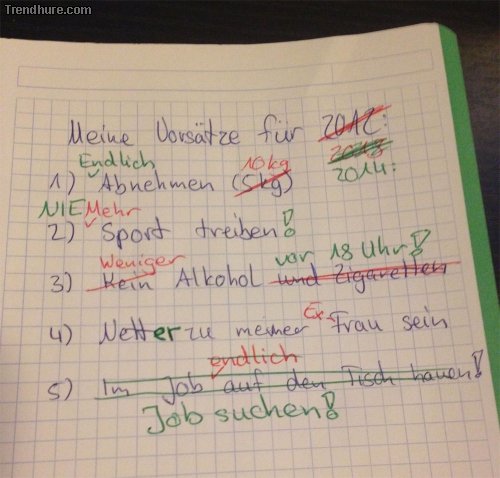 Trendhure.com
Meine Vorsätze für 2012:
2013
2014:
Endlich 10kg
1) Abnehmen (5kg)
NIE Mehr
2) Sport treiben!
Weniger vor 18 Uhr!
3) Kein Alkohol und Zigaretten
Ex-
4) Netter zu meiner Frau sein
endlich
5) Im Job auf den Tisch hauen!
Job suchen!